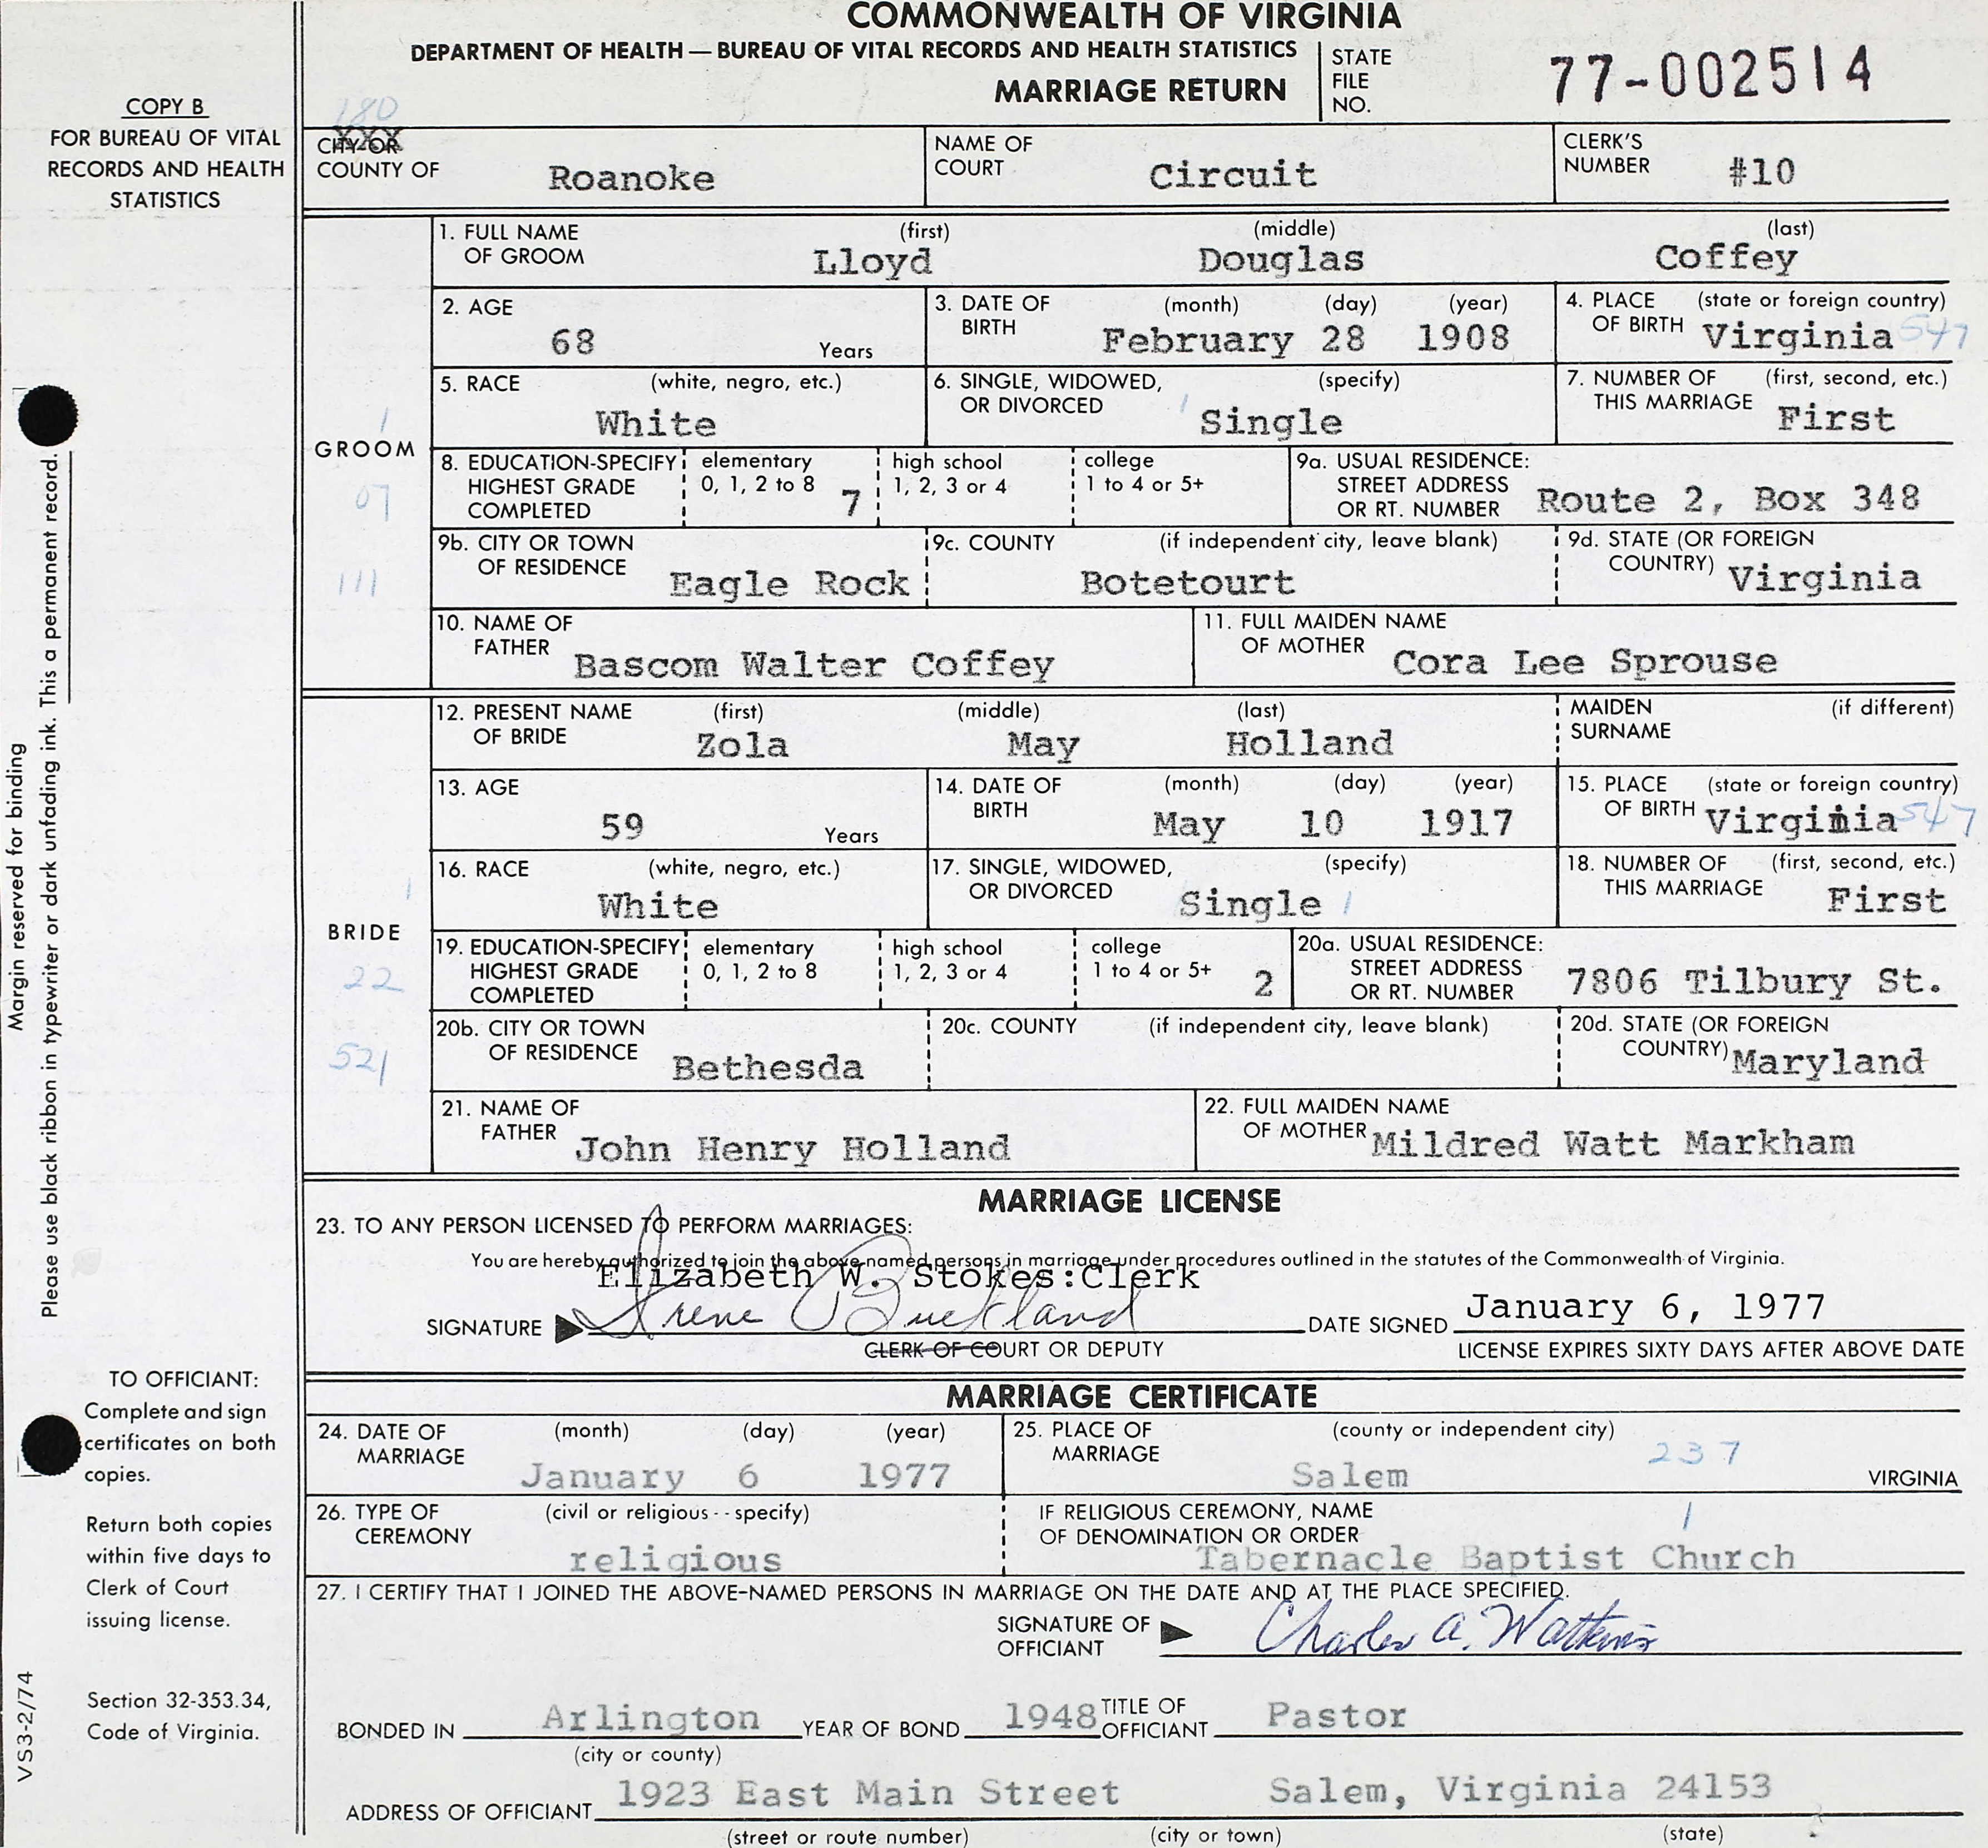 COMMONWEALTH OF VIRGINIA
DEPARTMENT OF HEALTH — BUREAU OF VITAL RECORDS AND HEALTH STATISTICS
MARRIAGE RETURN
STATE FILE NO. 77-002514
COPY B
FOR BUREAU OF VITAL
RECORDS AND HEALTH
STATISTICS
180
CITY OR XXX
COUNTY OF Roanoke
NAME OF COURT Circuit
CLERK'S NUMBER #10
GROOM
1
07
111
1. FULL NAME OF GROOM (first) Lloyd (middle) Douglas (last) Coffey
2. AGE 68 Years
3. DATE OF BIRTH (month) (day) (year) February 28 1908
4. PLACE OF BIRTH (state or foreign country) Virginia 547
5. RACE (white, negro, etc.) White
6. SINGLE, WIDOWED, OR DIVORCED (specify) 1 Single
7. NUMBER OF THIS MARRIAGE (first, second, etc.) First
8. EDUCATION-SPECIFY HIGHEST GRADE COMPLETED elementary 0, 1, 2 to 8 7 high school 1, 2, 3 or 4 college 1 to 4 or 5+
9a. USUAL RESIDENCE: STREET ADDRESS OR RT. NUMBER Route 2, Box 348
9b. CITY OR TOWN OF RESIDENCE Eagle Rock
9c. COUNTY (if independent city, leave blank) Botetourt
9d. STATE (OR FOREIGN COUNTRY) Virginia
10. NAME OF FATHER Bascom Walter Coffey
11. FULL MAIDEN NAME OF MOTHER Cora Lee Sprouse
BRIDE
1
22
521
12. PRESENT NAME OF BRIDE (first) Zola (middle) May (last) Holland
MAIDEN SURNAME (if different)
13. AGE 59 Years
14. DATE OF BIRTH (month) (day) (year) May 10 1917
15. PLACE OF BIRTH (state or foreign country) Virginia 547
16. RACE (white, negro, etc.) White
17. SINGLE, WIDOWED, OR DIVORCED (specify) Single 1
18. NUMBER OF THIS MARRIAGE (first, second, etc.) First
19. EDUCATION-SPECIFY HIGHEST GRADE COMPLETED elementary 0, 1, 2 to 8 high school 1, 2, 3 or 4 college 1 to 4 or 5+ 2
20a. USUAL RESIDENCE: STREET ADDRESS OR RT. NUMBER 7806 Tilbury St.
20b. CITY OR TOWN OF RESIDENCE Bethesda
20c. COUNTY (if independent city, leave blank)
20d. STATE (OR FOREIGN COUNTRY) Maryland
21. NAME OF FATHER John Henry Holland
22. FULL MAIDEN NAME OF MOTHER Mildred Watt Markham
MARRIAGE LICENSE
23. TO ANY PERSON LICENSED TO PERFORM MARRIAGES:
You are hereby authorized to join the above-named persons in marriage under procedures outlined in the statutes of the Commonwealth of Virginia.
Elizabeth W. Stokes:Clerk
SIGNATURE Irene Buckland
CLERK OF COURT OR DEPUTY
DATE SIGNED January 6, 1977
LICENSE EXPIRES SIXTY DAYS AFTER ABOVE DATE
MARRIAGE CERTIFICATE
24. DATE OF MARRIAGE (month) (day) (year) January 6 1977
25. PLACE OF MARRIAGE (county or independent city) Salem 237 VIRGINIA
26. TYPE OF CEREMONY (civil or religious -- specify) religious
IF RELIGIOUS CEREMONY, NAME OF DENOMINATION OR ORDER 1 Tabernacle Baptist Church
27. I CERTIFY THAT I JOINED THE ABOVE-NAMED PERSONS IN MARRIAGE ON THE DATE AND AT THE PLACE SPECIFIED.
SIGNATURE OF OFFICIANT Charles A. Watkins
BONDED IN Arlington (city or county) YEAR OF BOND 1948 TITLE OF OFFICIANT Pastor
ADDRESS OF OFFICIANT 1923 East Main Street Salem, Virginia 24153
(street or route number) (city or town) (state)
Margin reserved for binding
Please use black ribbon in typewriter or dark unfading ink. This a permanent record.
TO OFFICIANT:
Complete and sign
certificates on both
copies.
Return both copies
within five days to
Clerk of Court
issuing license.
Section 32-353.34,
Code of Virginia.
VS3-2/74